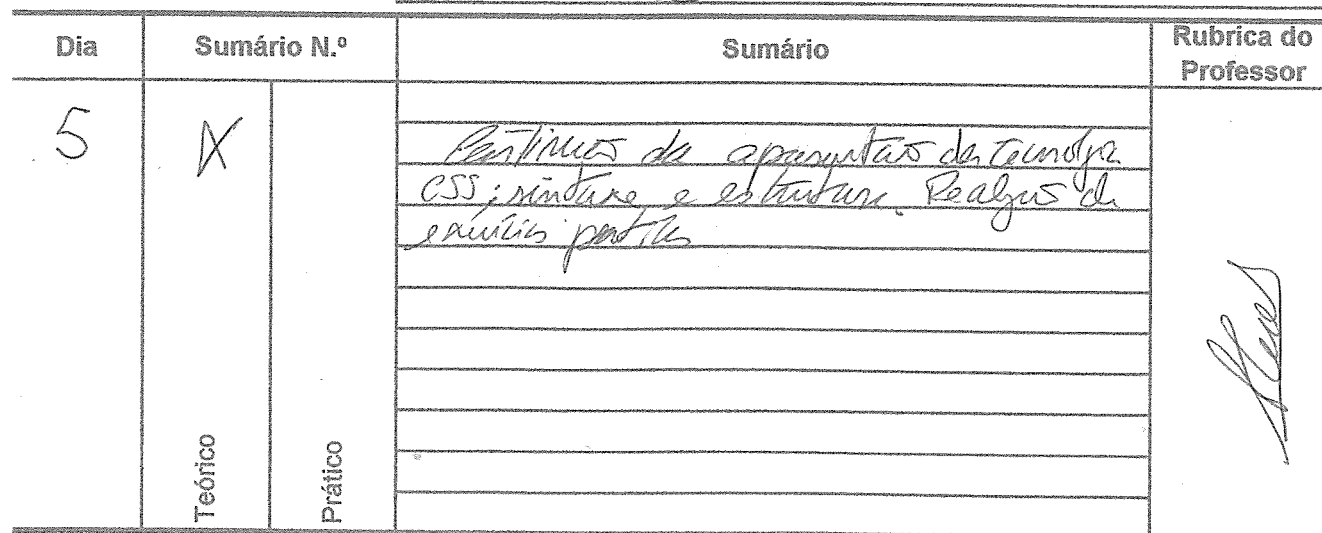 Dia
Sumário N.º
Sumário
Rubrica do
Professor
5
X
Continuação da apresentação da tecnologia
CSS; sintaxe e estrutura. Realização de
exercícios práticos
Teórico
Prático